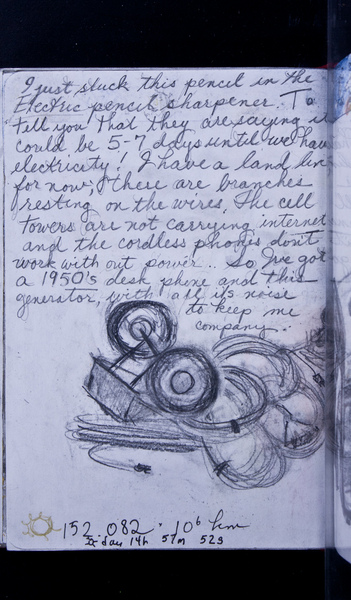 I just stuck this pencil in the
Electric pencil sharpener. To
tell you that they are saying it
could be 5-7 days until we have
electricity! I have a land line
for now; there are branches
resting on the wires, The cell
towers are not carrying internet
and the cordless phones don't
work with out power.. So, I've got
a 1950's desk phone and this
generator, with all its noise
to keep me
company..
152.082 · 10⁶ km
day 14h 57m 52s